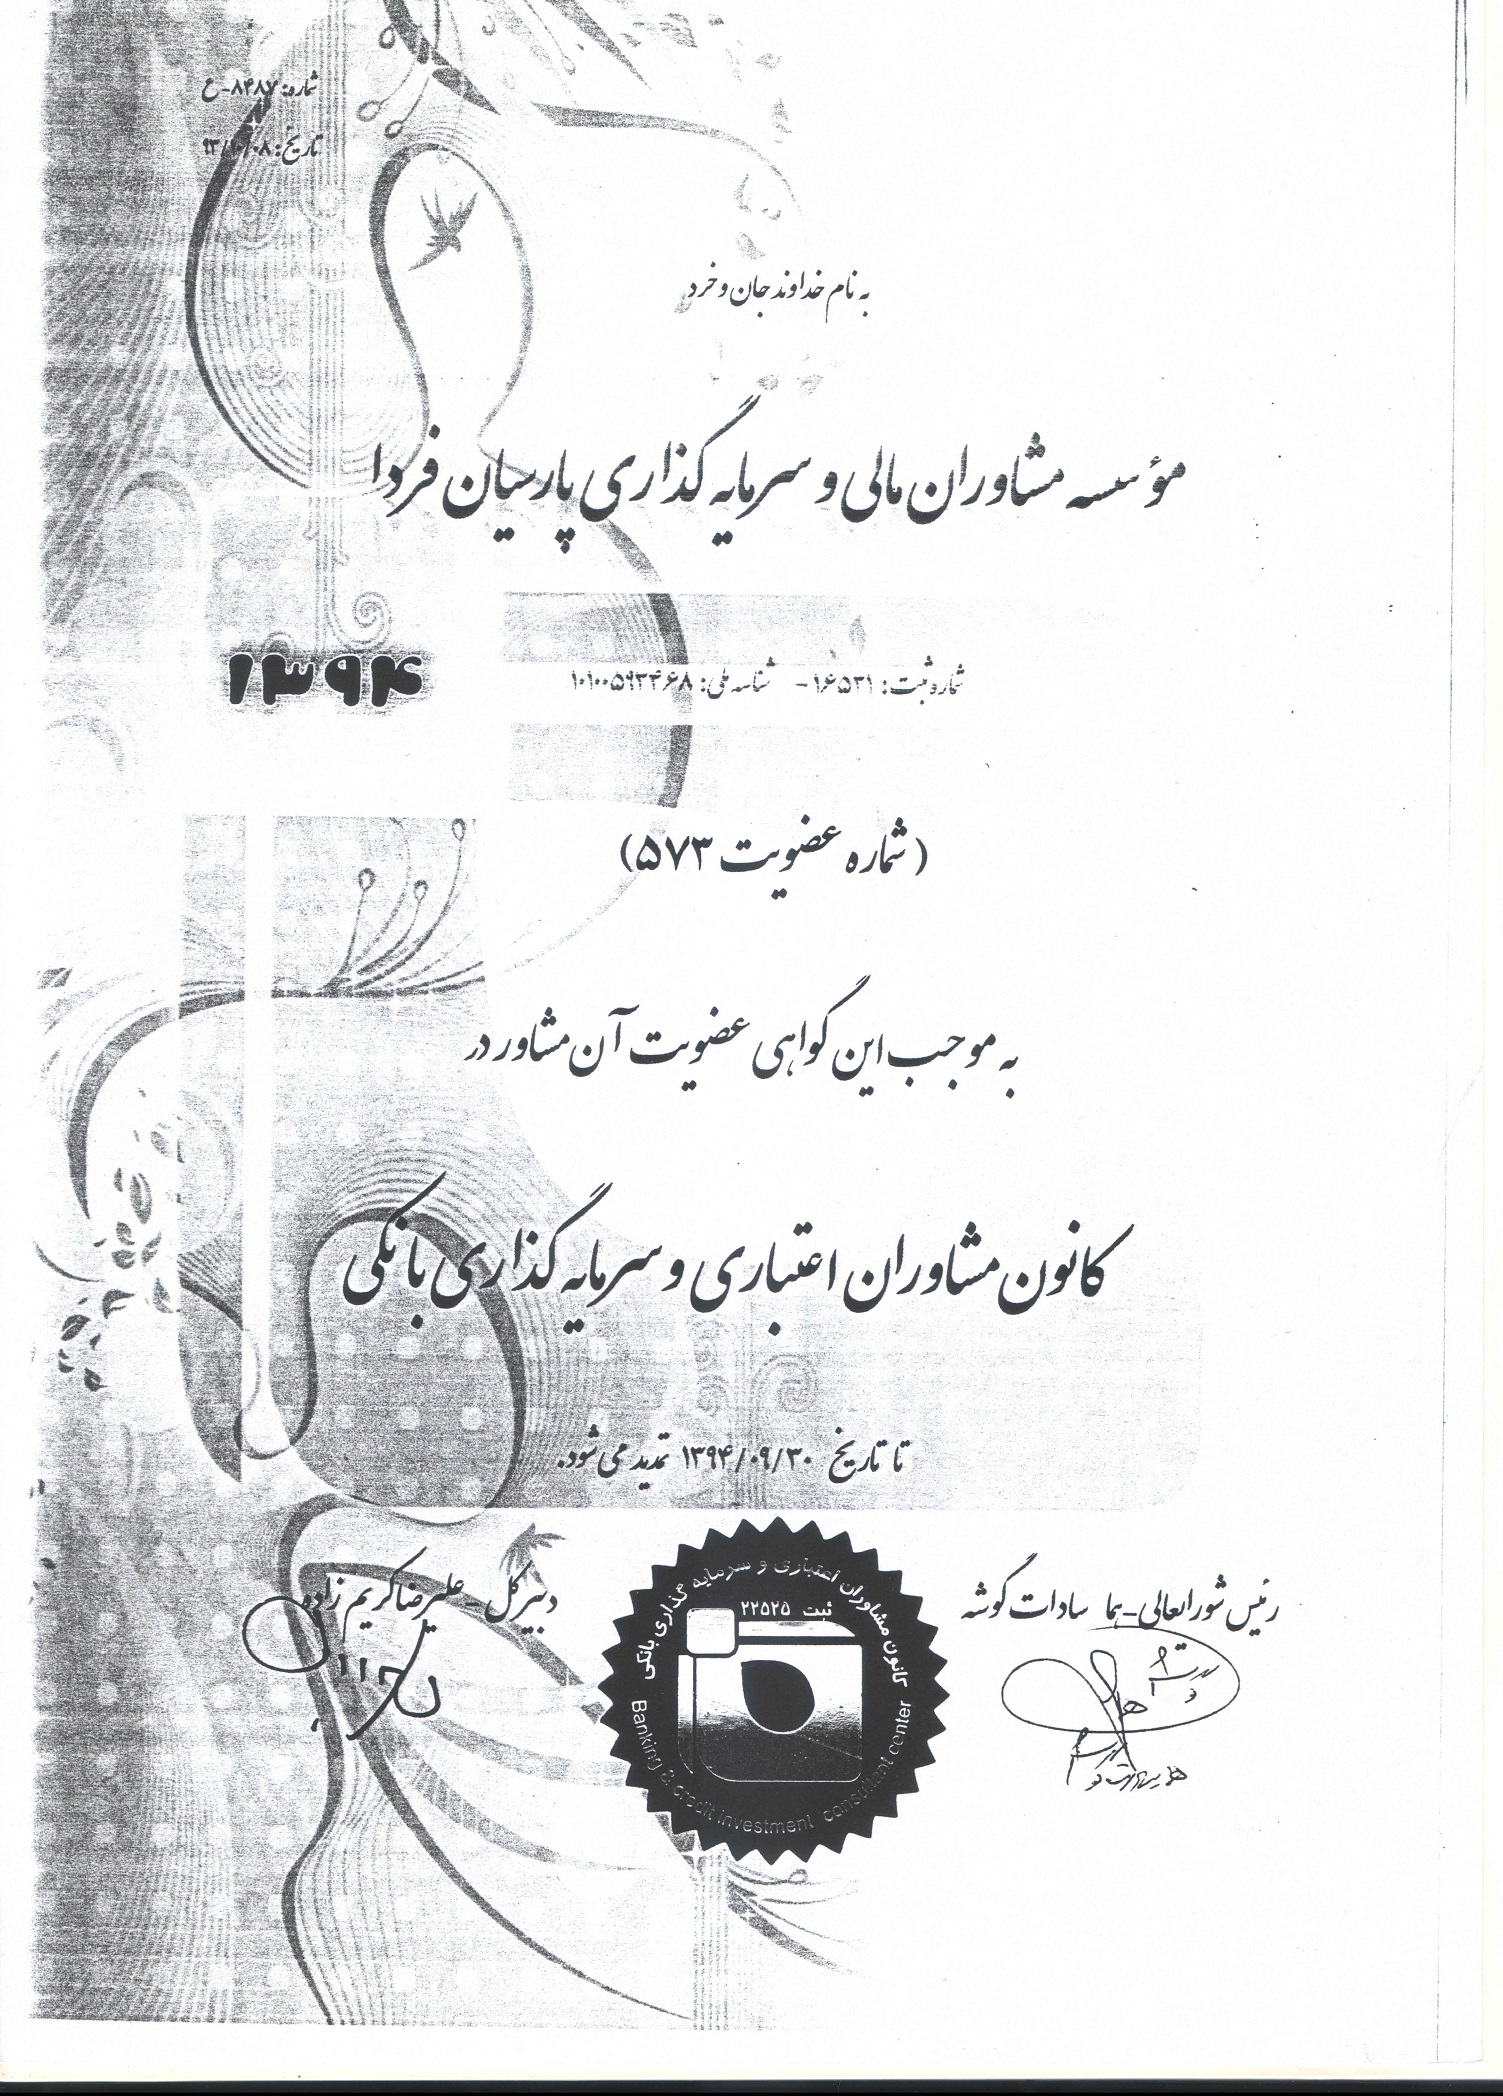 شماره: ۸۴۸۷-ع
تاریخ: ۹۳/۱۰/۰۸
به نام خداوند جان و خرد
مؤسسه مشاوران مالی و سرمایه گذاری پارسیان فردا
۱۳۹۴
شماره ثبت: ۱۶۵۳۱- شناسه ملی: ۱۰۱۰۰۵۹۳۴۶۸
(شماره عضویت ۵۷۳)
به موجب این گواهی عضویت آن مشاور در
کانون مشاوران اعتباری و سرمایه گذاری بانکی
تا تاریخ ۱۳۹۴/۰۹/۳۰ تمدید می شود.
رئیس شورایعالی-هما سادات گوشه
دبیر کل - علیرضا کریم زاده
کانون مشاوران اعتباری و سرمایه گذاری بانکی
ثبت ۲۲۵۲۵
Banking & credit investment consultant center